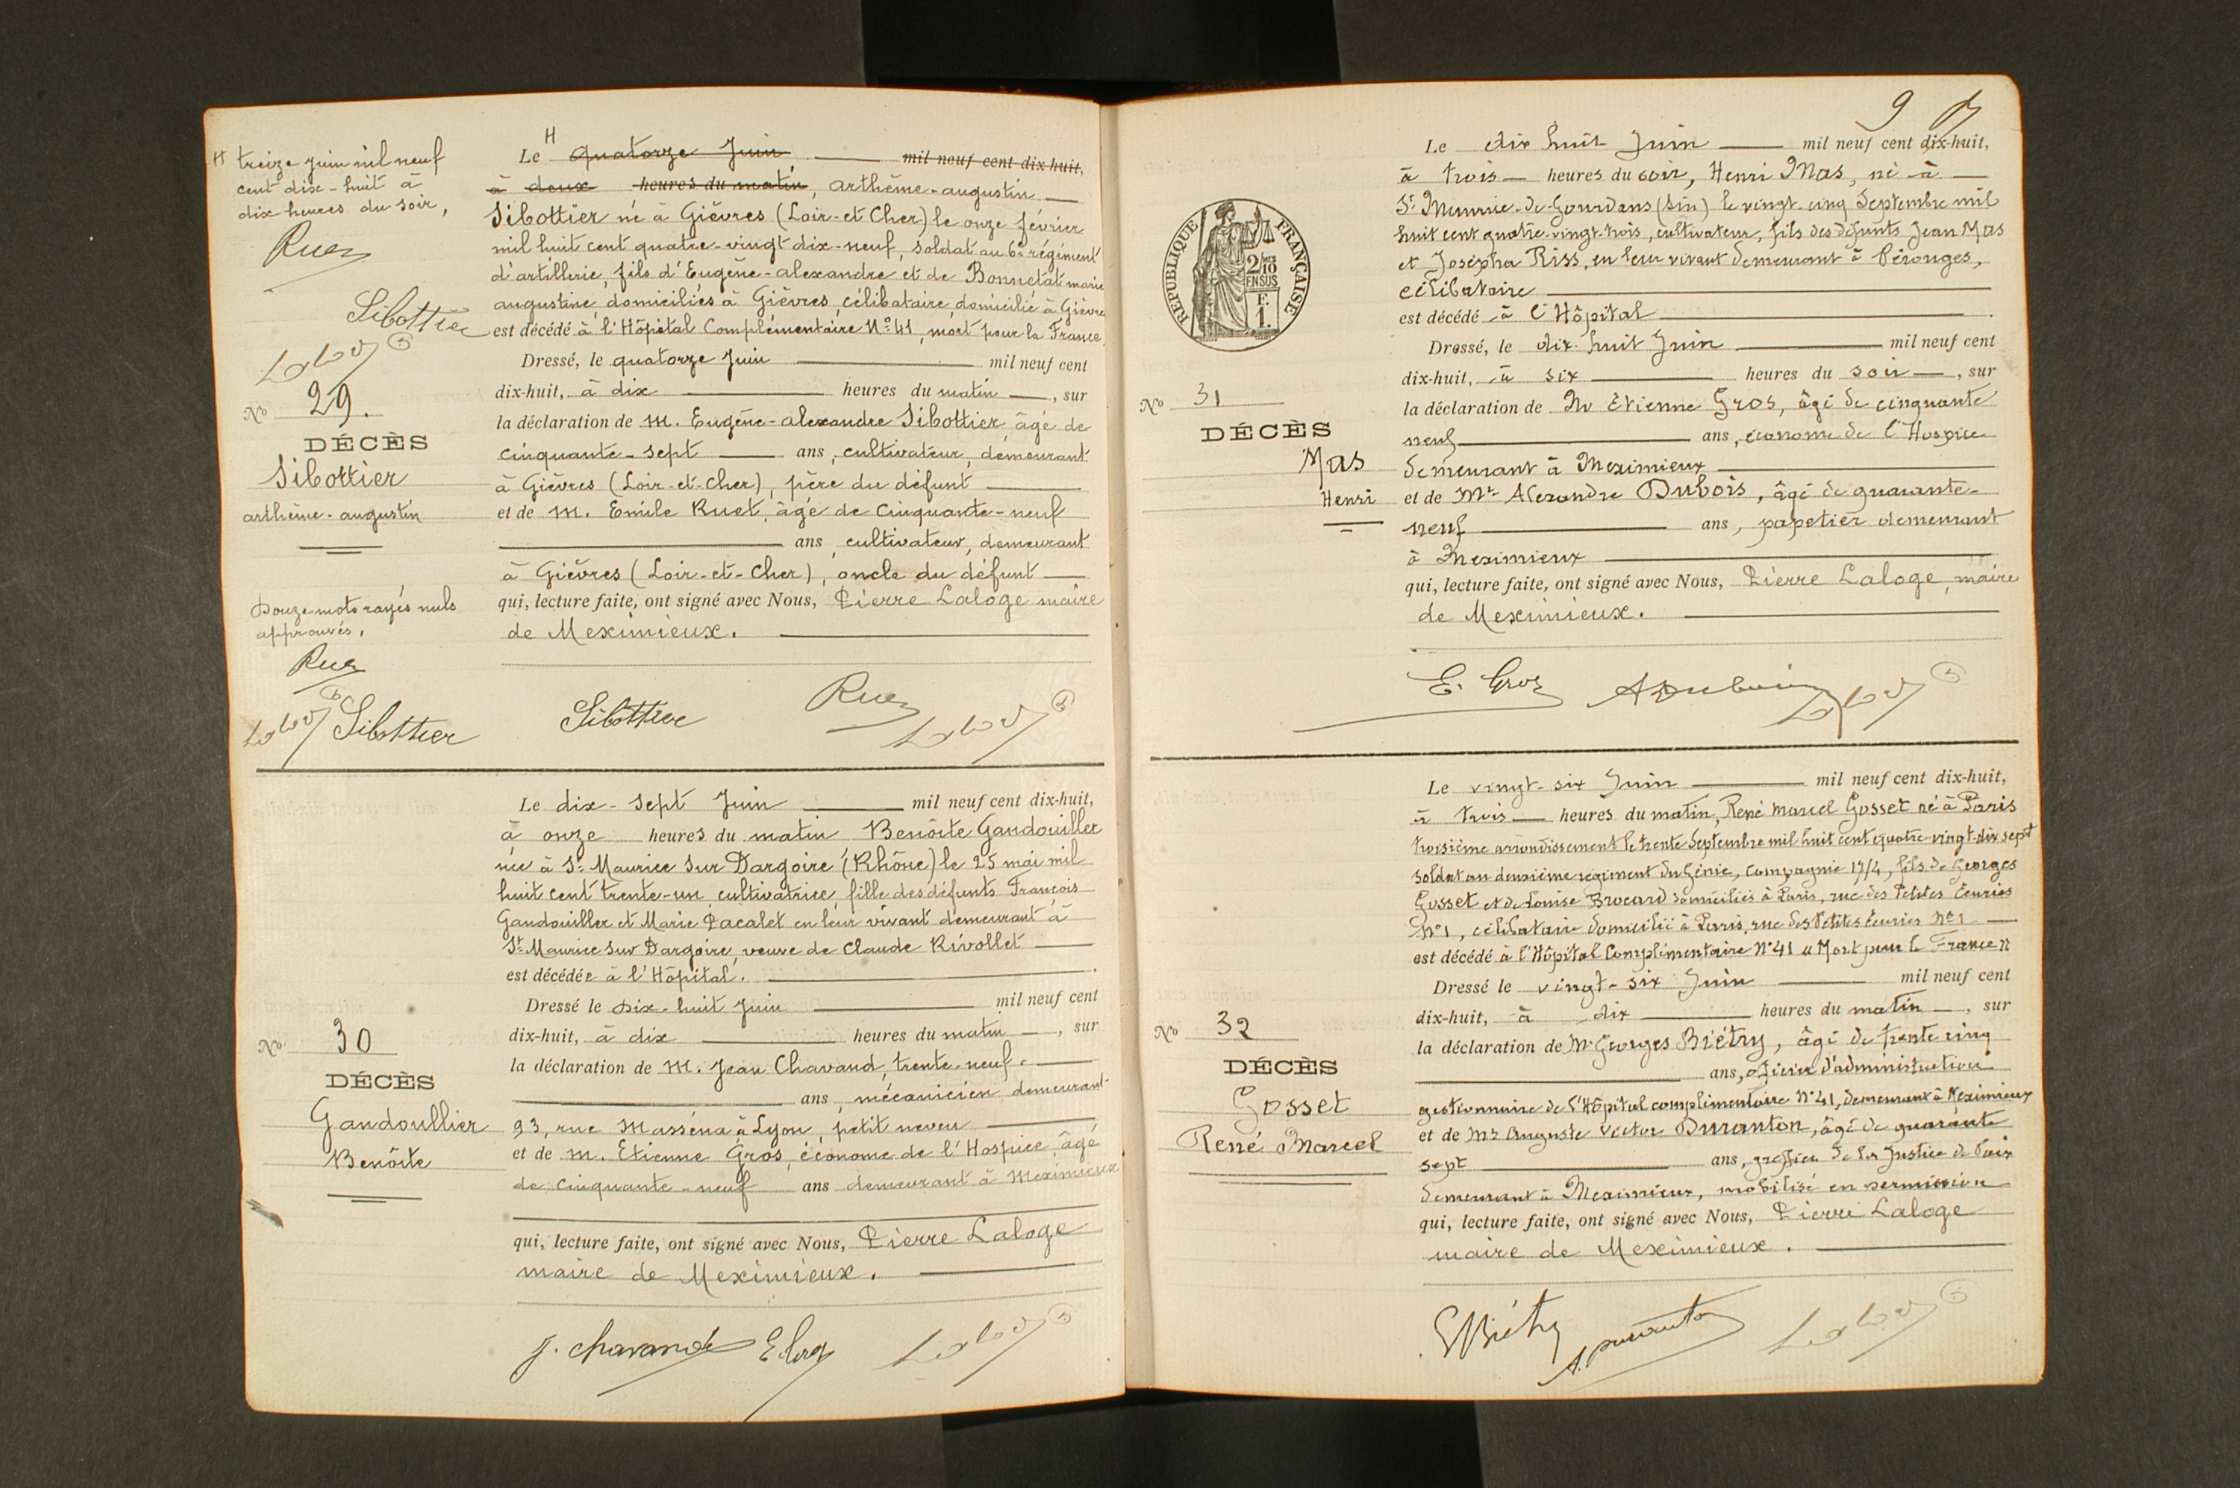 H treize juin mil neuf
cent dix-huit à
dix heures du soir,
Ruez
Sibottier
N° 29.
DÉCÈS
Sibottier
arthème-augustin
Douze mots rayés nuls
approuvés.
Ruez
Sibottier
Le H quatorze Juin mil neuf cent dix huit,
à deux heures du matin, arthème-augustin
Sibottier né à Gièvres (Loir-et-Cher) le onze février
mil huit cent quatre-vingt dix-neuf, soldat au 6e régiment
d'artillerie, fils d'Eugène-alexandre et de Bonnetat marie
augustine, domiciliés à Gièvres, célibataire, domicilié à Gièvres
est décédé à l'Hôpital Complémentaire N° 41, mort pour la France.
Dressé, le quatorze Juin mil neuf cent
dix-huit, à dix heures du matin, sur
la déclaration de M. Eugène-alexandre Sibottier âgé de
cinquante-sept ans, cultivateur, demeurant
à Gièvres (Loir-et-Cher), père du défunt
et de M. Emile Ruet, âgé de Cinquante-neuf
ans, cultivateur, demeurant
à Gièvres (Loir-et-Cher), oncle du défunt
qui, lecture faite, ont signé avec Nous, Pierre Laloge maire
de Meximieux.
Sibottier Ruez
N° 30
DÉCÈS
Gandoullier
Benôite
Le dix-sept Juin mil neuf cent dix-huit,
à onze heures du matin Benôite Gandouiller
née à St Maurice sur Dargoire (Rhône) le 25 mai mil
huit cent trente-un, cultivatrice, fille des défunts François
Gandouiller et Marie Pacalet en leur vivant demeurant à
St Maurice sur Dargoire, veuve de Claude Rivollet
est décédée à l'Hôpital.
Dressé le Dix-huit Juin mil neuf cent
dix-huit, à dix heures du matin, sur
la déclaration de M. Jean Chavand, trente-neuf.
ans, mécanicien demeurant
93, rue Masséna à Lyon, petit neveu
et de M. Etienne Gros, économe de l'Hospice, âgé
de cinquante-neuf ans demeurant à Meximieux
qui, lecture faite, ont signé avec Nous, Pierre Laloge
maire de Meximieux.
J. Chavand E. Gros
9
RÉPUBLIQUE FRANÇAISE
2/10
EN SUS
F.
1.
N° 31
DÉCÈS
Mas
Henri
Le dix huit Juin mil neuf cent dix-huit,
à trois heures du soir, Henri Mas, né à
St Maurice-de-Gourdans (Ain) le vingt-cinq Septembre mil
huit cent quatre-vingt-trois, cultivateur, fils des défunts Jean Mas
et Josépha Riss, en leur vivant demeurant à Pérouges,
célibataire
est décédé à l'Hôpital
Dressé, le dix-huit Juin mil neuf cent
dix-huit, à six heures du soir, sur
la déclaration de Mr Etienne Gros, âgé de cinquante
neuf ans, économe de l'Hospice
demeurant à Meximieux
et de Mr Alexandre Dubois, âgé de quarante-
neuf ans, papetier demeurant
à Meximieux
qui, lecture faite, ont signé avec Nous, Pierre Laloge, maire
de Meximieux.
E. Gros A Dubois
N° 32
DÉCÈS
Gosset
René Marcel
Le vingt-six Juin mil neuf cent dix-huit,
à trois heures du matin, René Marcel Gosset né à Paris
troisième arrondissement le trente Septembre mil huit cent quatre-vingt-dix sept
soldat au deuxième régiment du Génie, Compagnie 17/4, fils de Georges
Gosset et de Louise Brocard domiciliés à Paris, rue des Petites Ecuries
N° 1, célibataire domicilié à Paris, rue des Petites Ecuries N° 1
est décédé à l'Hôpital Complémentaire N° 41 "Mort pour la France"
Dressé le vingt-six Juin mil neuf cent
dix-huit, à dix heures du matin, sur
la déclaration de Mr Georges Biétry, âgé de trente cinq
ans, officier d'administration
gestionnaire de l'Hôpital complémentaire N° 41, demeurant à Meximieux
et de Mr Auguste Victor Duranton, âgé de quarante
sept ans, greffier de la Justice de Paix
demeurant à Meximieux, mobilisé en permission
qui, lecture faite, ont signé avec Nous, Pierre Laloge
maire de Meximieux.
GBiétry
A. Duranton